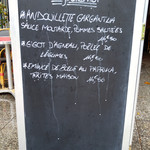 * ANDOUILLETTE GARGANTUA
SAUCE MOUTARDE, POMMES SAUTÉES
14€50
* GIGOT D'AGNEAU, POÊLÉE DE
LÉGUMES 14€50
* EMINCÉ DE BOEUF AU PAPRIKA,
FRITES MAISON 14€50